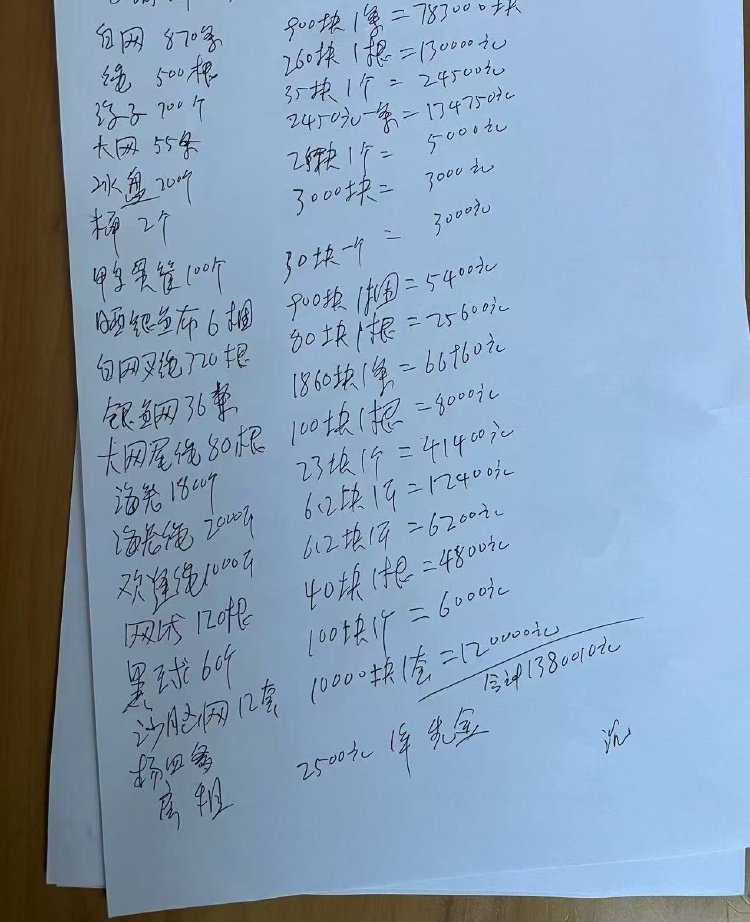 白网 870条 900块1条=783000块
绳 500根 260块1根=130000元
700个 35块1个=24500元
大网 55条 2450元一条=134750元
冰盘 200个 25块1个= 5000元
桶 2个 3000块= 3000元
鸭蛋 100个 30块一个= 3000元
晒银鱼布 6捆 900块1捆=5400元
白网叉绳320根 80块1根=25600元
银鱼网36条 1860块1条=66960元
大网尾绳80根 100块1根=8000元
1800个 23块1个=41400元
绳 2000斤 6.2块1斤=12400元
绳1000斤 6.2块1斤=6200元
120根 40块1根=4800元
黑球60个 100块1个=6000元
网12套 10000块1套=120000元
合计1380010元
杨四
房租 2500元 1年